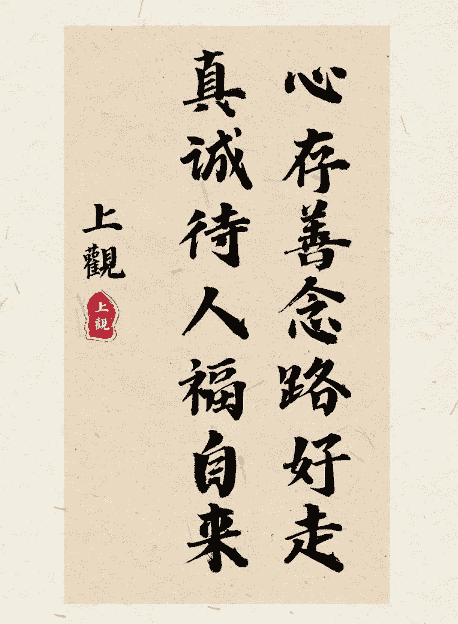 心存善念路好走
真诚待人福自来
上觀
上觀